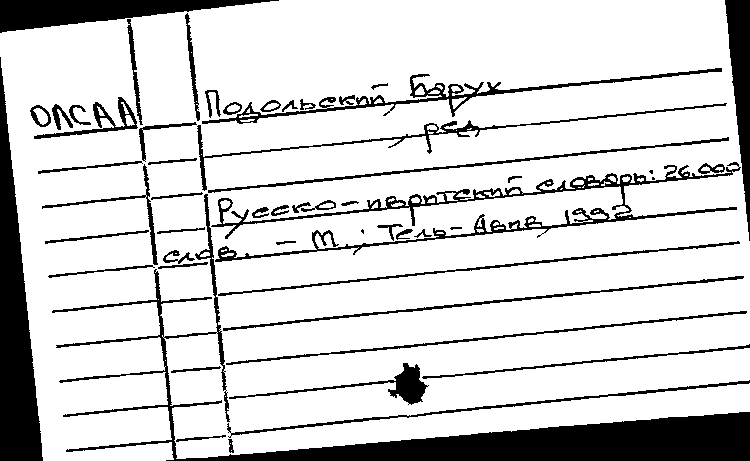 ОЛСАА Подольский, Барух
, ред.
Русско-ивритский словарь: 26.000
слов. - М.; Тель-Авив, 1992